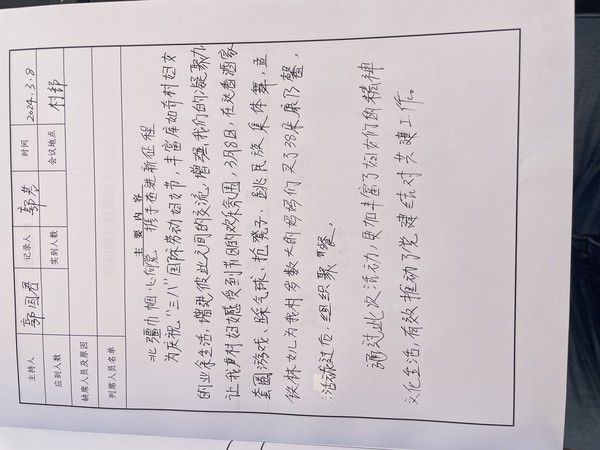 主持人 郭国君 记录人 郭芳 时间 2024.3.8
应到人数 实到人数 会议地点 村部
缺席人员及原因
列席人员名单
主要内容
北疆巾帼心向党 携手奋进新征程
为庆祝“三八”国际劳动妇女节,丰富库如奇村妇女
的业余生活,增进彼此之间的交流,增强我们的凝聚力
让我村妇感受到节日的欢乐氛围,3月8日,在这香酒家
套圈游戏、踩气球、抢凳子、跳民族集体舞,
林女儿为我村岁数大的妈妈们 了38束康乃馨,
活动过后,组织聚餐。
通过此次活动,更加丰富了妇女们的精神
文化生活,有效推动了党建结对共建工作。